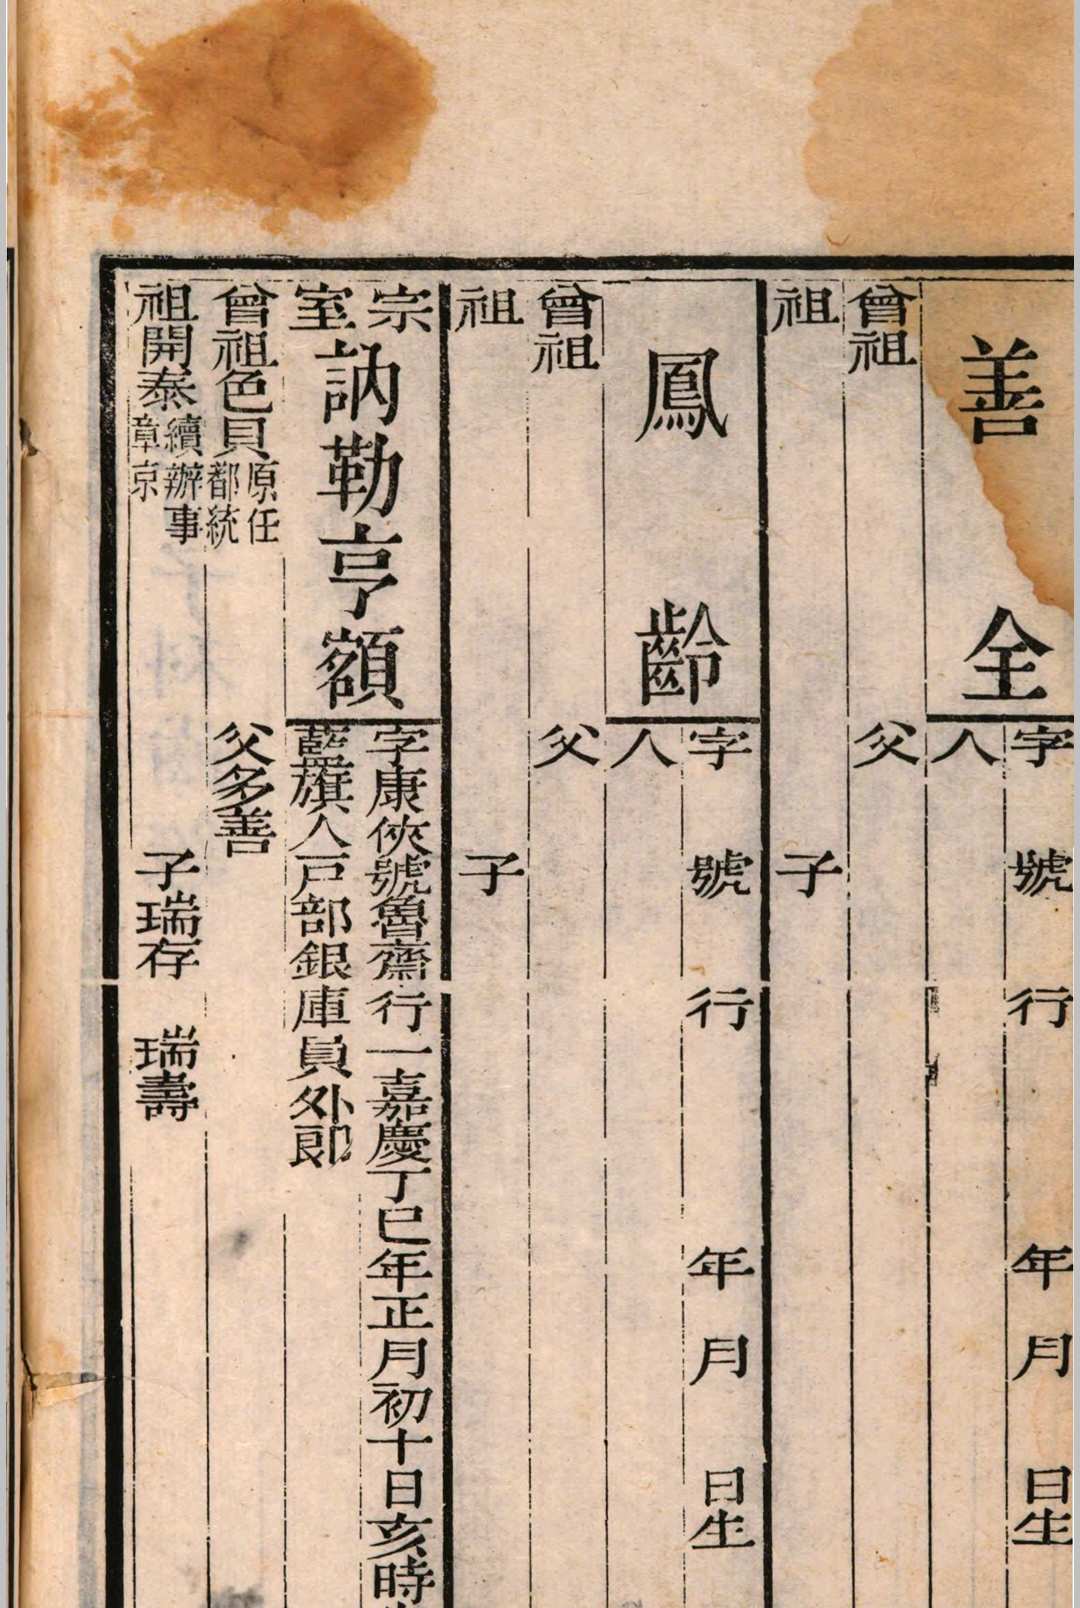 善全
字 號 行 年 月 日生
人
曾祖 父
祖 子
鳳齡
字 號 行 年 月 日生
人
曾祖 父
祖 子
宗室訥勒亨額
字康俠號魯齋行一嘉慶丁巳年正月初十日亥時
藍旗人戶部銀庫員外郎
曾祖色貝原任都統 父多善
祖開泰續辦事章京 子瑞存 瑞壽